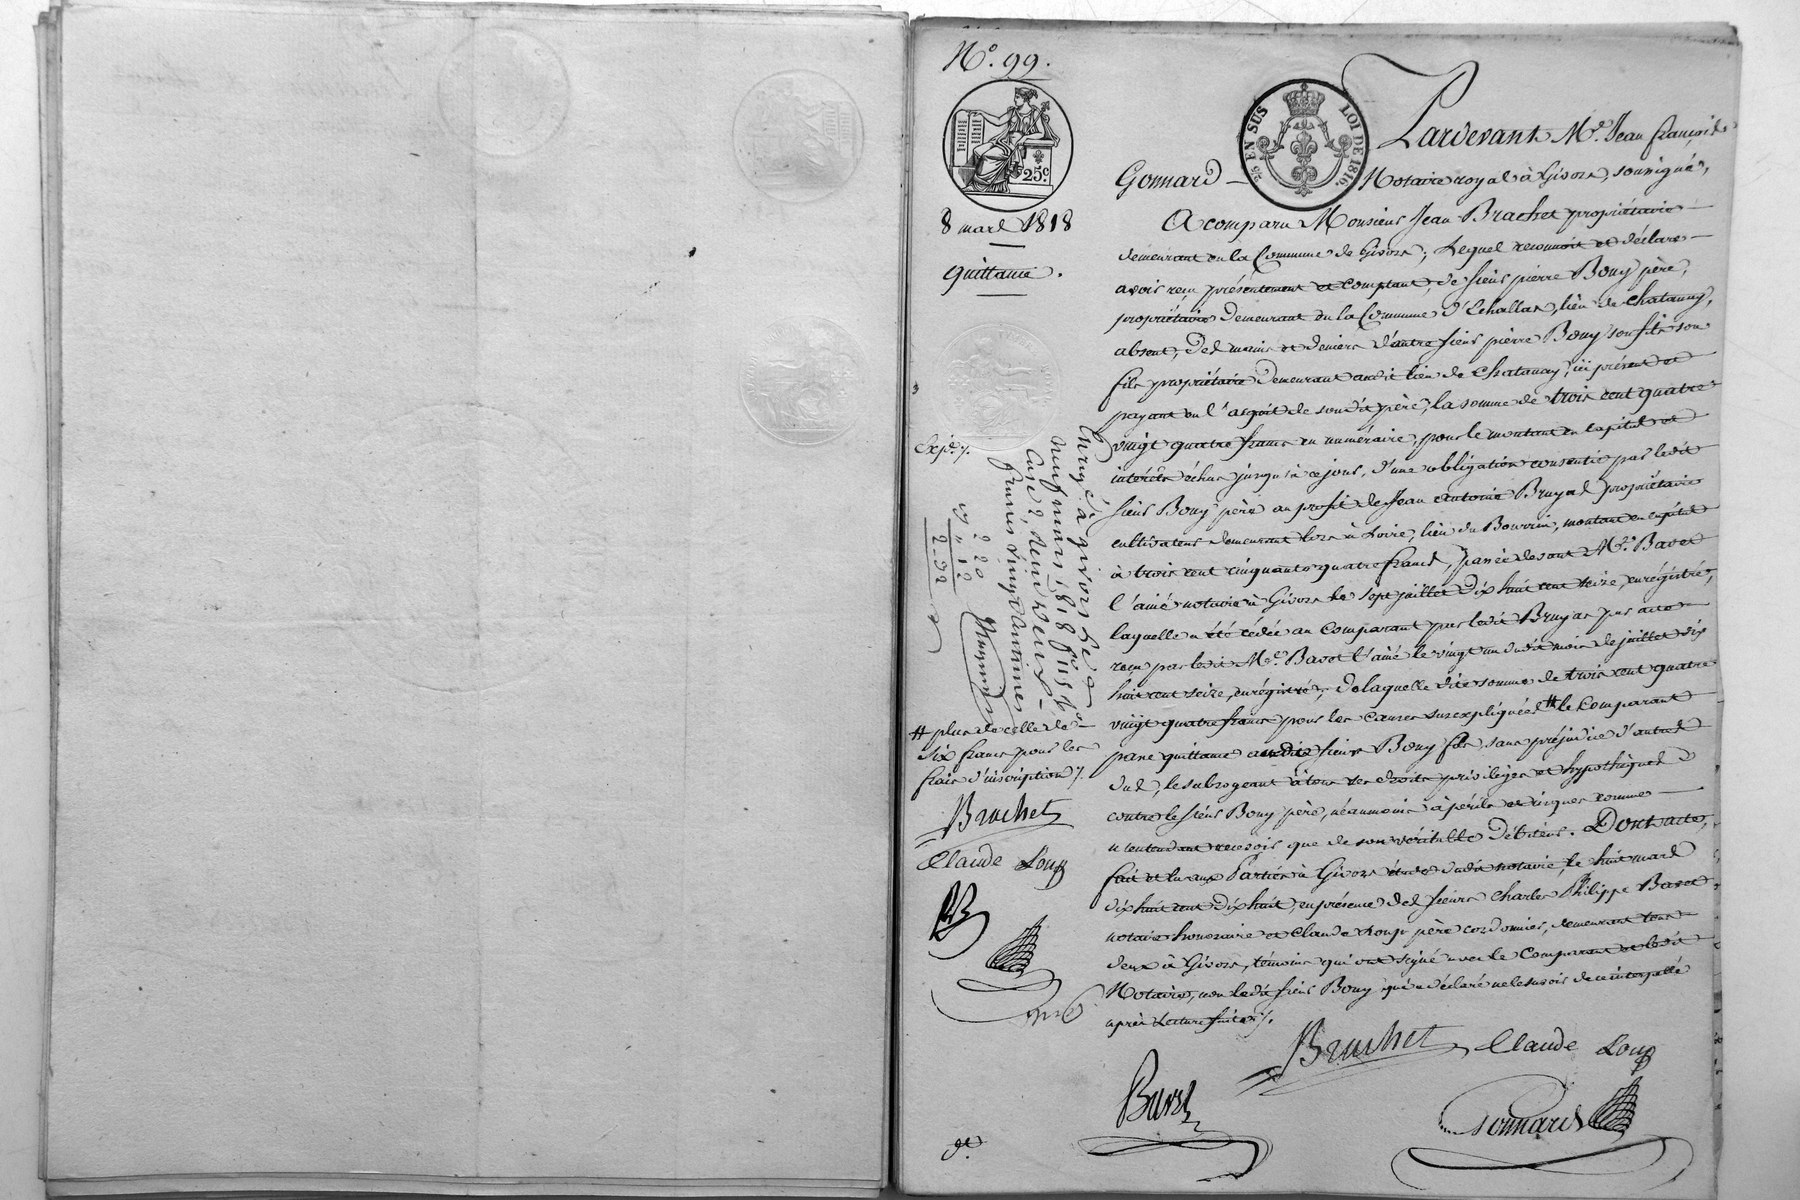 N.° 99.
25.c
EN SUS
LOI DE 1816.
8 mars 1818
quittance.
Pardevant M.e Jean françois
Gonnard — Notaire royal à Givors, soussigné,
A comparu Monsieur Jean Brachet propriétaire
demeurant en la Commune de Givors; Lequel reconnoit et déclare
avoir reçu présentement et comptant, de sieur pierre Bouy père,
propriétaire demeurant en la Commune d'Echallas, lieu de Chatanay,
absent, des mains et deniers d'autre sieur pierre Bouy son fils son
fils propriétaire demeurant audit lieu de Chatanay, ici présent et
payant en l'acquit de son dit père, la somme de trois cent quatre
vingt quatre francs en numéraire, pour le montant en capital et
intérêts échus jusqu'à ce jour, d'une obligation consentie par ledit
sieur Bouy père au profit de Jean Antoine Bruyas propriétaire
cultivateur demeurant lors à Loire, lieu du Bourrin, montant en capital
à trois cent cinquante quatre francs, passée devant M.e Bavet
l'ainé notaire à Givors le sept juillet dix huit cent seize, enrégistrée,
laquelle a été cédée au Comparant par ledit Bruyas par acte
reçu par ledit M.e Bavot l'ainé le vingt un dudit mois de juillet dix
huit cent seize, enrégistré; de laquelle dite somme de trois cent quatre
vingt quatre francs pour les causes susexpliquées # le Comparant
passe quittance audit sieur Bouy fils, sans préjudice d'autres
dus, le subrogeant à tous ses droits privilèges et hypothèques
contre le sieur Bouy père, néanmoins à périls et risques comme
n'entendant recevoir que de son véritable débiteur. Dont acte,
fait et lu aux Parties à Givors étude dudit notaire, le huit mars
dix huit cent dix huit, en présence des sieurs Charles Philippe Bavet
notaire honoraire et Claude Loup père cordonnier, demeurant tous
deux à Givors, témoins qui ont signé avec le Comparant et ledit
Notaire, non ledit sieur Bouy qui a déclaré ne le savoir de ce interpellé
après Lecture faite ./.
Expd ./.
Enrgé à givors le
neuf mars 1818 f.° 115 v.°
Case 2, reçu deux
francs vingt centimes
2 20
" 12
2-32
# plus de celle de
six francs pour les
frais d'inscription ./.
Brachet
Claude Loup
Brachet Claude Loup
Gonnard